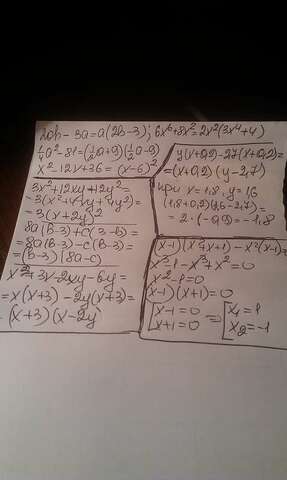 2ab - 3a = a(2b-3); 6x⁶+8x²=2x²(3x⁴+4)
¼a²-81=(½a+9)(½a-9)
x²-12x+36 = (x-6)²
3x²+12xy+12y²=
-3(x²+4xy+4y²)=
-3(x+2y)²
8a(b-3)+c(3-b)=
=8a(b-3)-c(b-3)=
=(b-3)(8a-c)
x²+3x-2xy-6y=
=x(x+3)-2y(x+3)=
-(x+3)(x-2y)
y(x+0,2)-2,7(x+0,2)=
=(x+0,2)(y-2,7)
при x=1,8, y=1,6
(1,8+0,2)(1,6-2,7)=
=2·(-0,9)=-1,8
(x-1)(x²+x+1)-x²(x-1)=
x³-1-x³+x²=0
x²-1=0
(x-1)(x+1)=0
[x-1=0 => [x₁=1
[x+1=0 [x₂=-1